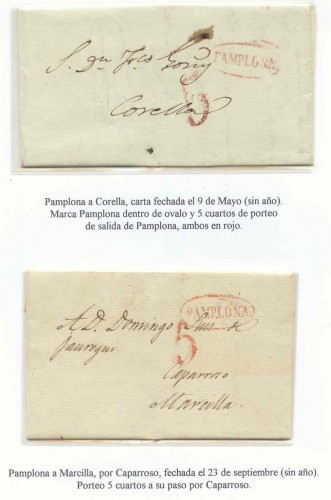 S. Dn. Frco Goñy
PAMPLONA
5
Corella
Pamplona a Corella, carta fechada el 9 de Mayo (sin año).
Marca Pamplona dentro de ovalo y 5 cuartos de porteo
de salida de Pamplona, ambos en rojo.
PAMPLONA
A D. Domingo Luis de
5
Jauregui
Caparroso
Marcilla.
Pamplona a Marcilla, por Caparroso, fechada el 23 de septiembre (sin año).
Porteo 5 cuartos a su paso por Caparroso.